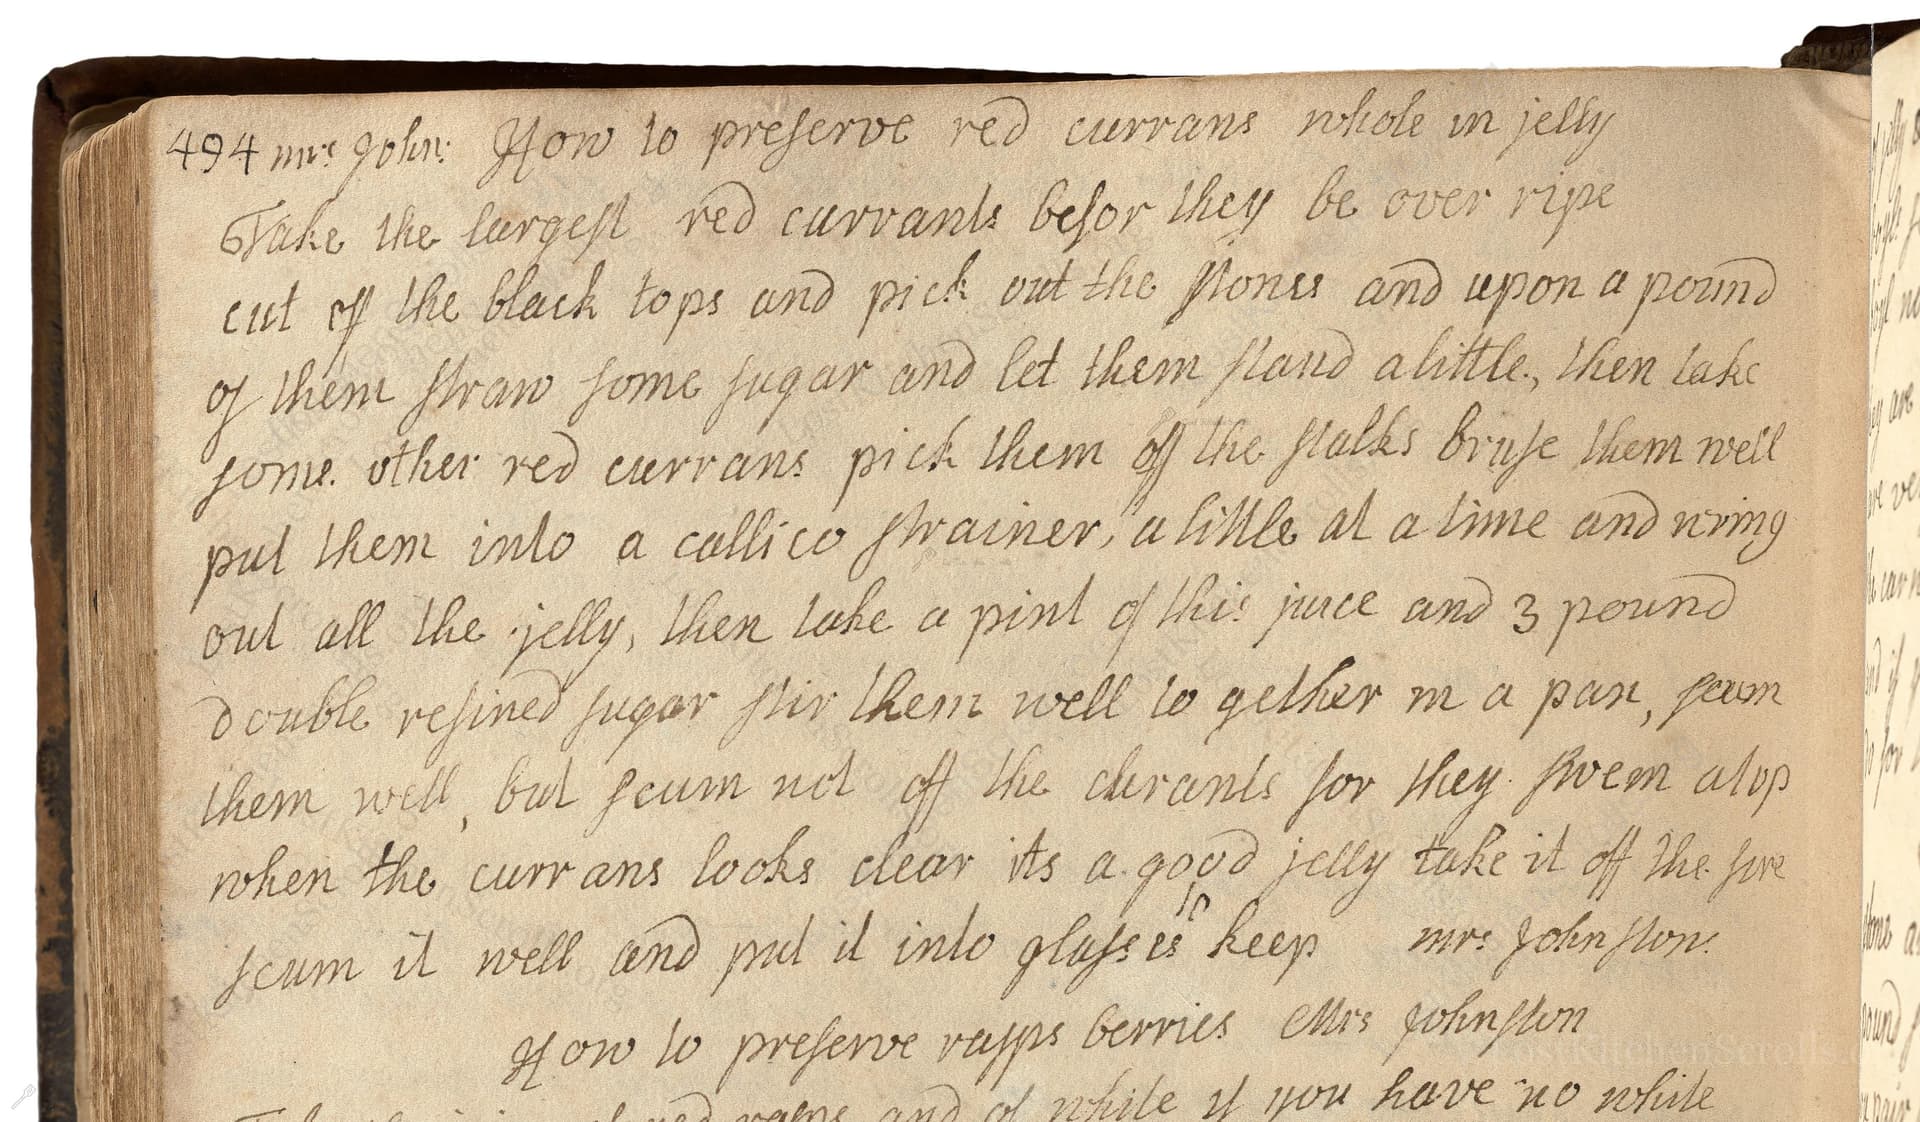 494 mrs John: How to preserve red currans whole in jelly
Take the largest red currants befor they be over ripe
cut off the black tops and pick out the stones and upon a pound
of them straw some sugar and let them stand a little, then take
some other red currans pick them off the stalks bruse them well
put them into a callico strainer, a little at a time and wring
out all the jelly, then take a pint of this juice and 3 pound
double refined sugar stir them well to gether in a pan, scum
them well, but scum not off the currants for they sweem atop
when the currans looks clear its a good jelly take it off the fire
scum it well and put it into glasses to keep mrs Johnston:
How to preserve rapps berries Mrs Johnston
and of white if you have no white